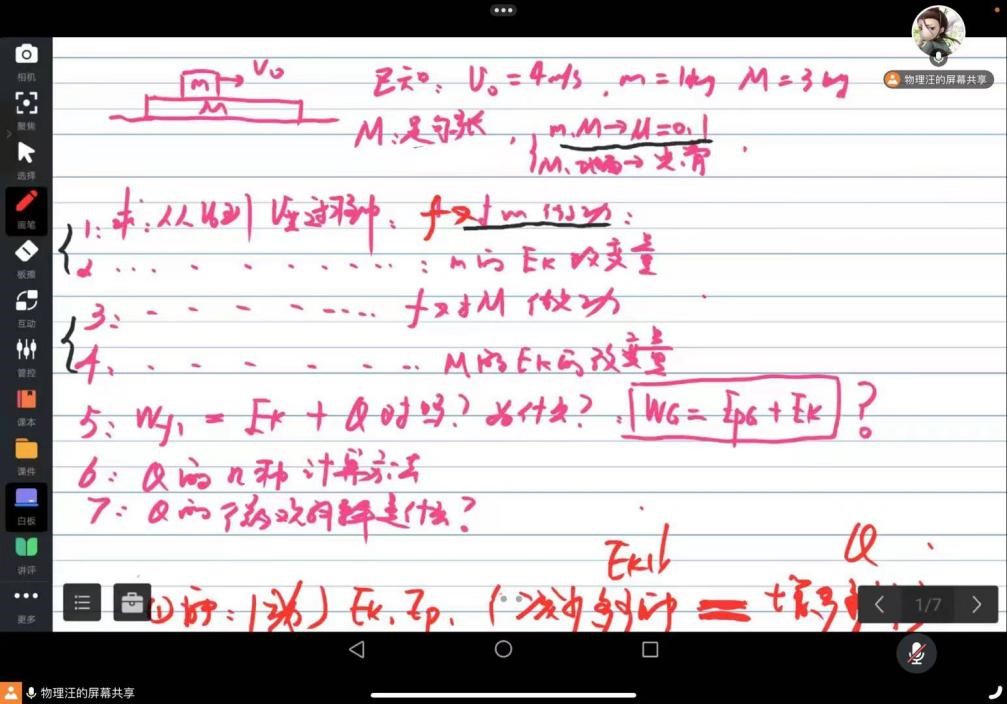 物理汪的屏幕共享
相机
聚焦
选择
画笔
板擦
互动
管控
课本
课件
白板
讲评
更多
m V₀
M
已知: V₀=4m/s, m=1kg M=3kg
M:足够长, m、M→μ=0.1
M、地面→光滑
1: 求:从V₀到V共过程中: f对m做功:
2 ... : m的Ek改变量
3: ... f对M做功
4、 ... M的Ek的改变量
5: Wf = Ek + Q对吗? 为什么? : WG = EpG + Ek ?
6: Q的n种计算方法
7: Q的是什么?
Ek↓ Q
① Ek、Ep、减少 =
1/7
物理汪的屏幕共享